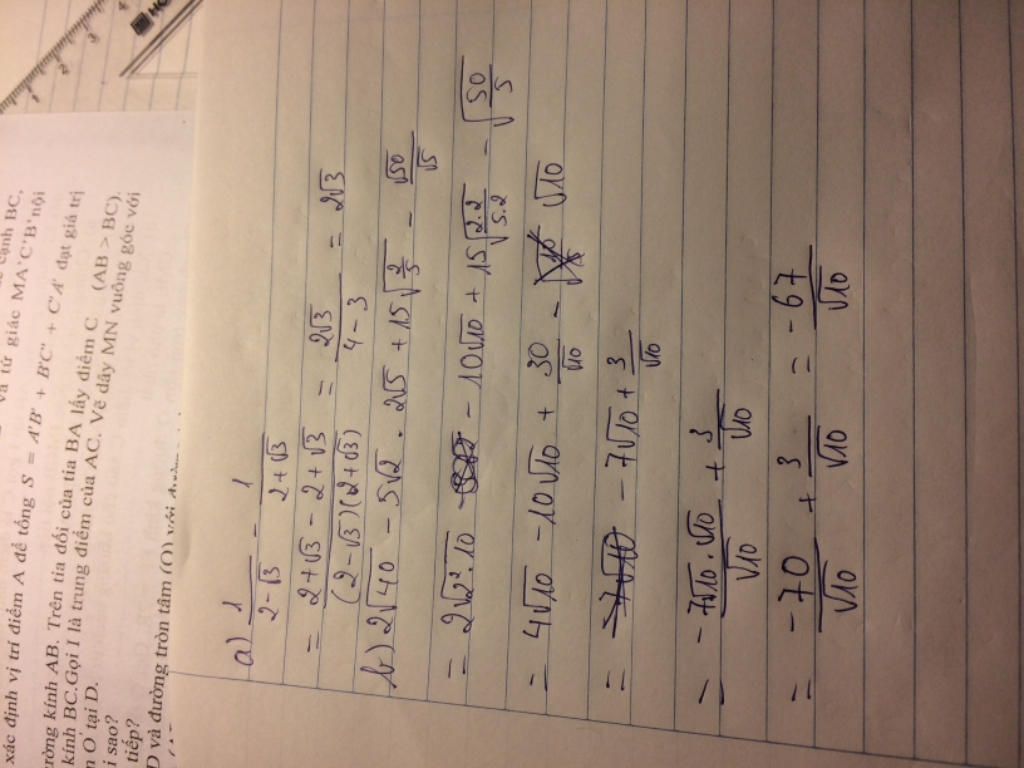 và tứ giác MA'C'B' nội
xác định vị trí điểm A để tổng S = A'B' + B'C' + C'A' đạt giá trị
ường kính AB. Trên tia đối của tia BA lấy điểm C (AB > BC).
kính BC.Gọi I là trung điểm của AC. Vẽ dây MN vuông góc với
n O tại D.
i sao?
tiếp?
D và đường tròn tâm (O) với
a) 1/(2-√3) - 1/(2+√3)
= (2+√3 - 2+√3)/((2-√3)(2+√3)) = 2√3/(4-3) = 2√3
b) 2√40 - 5√2 . 2√5 + 15√(2/5) - √50/√5
= 2√(2².10) - 10√10 + 15√(2.2/5.2) - √(50/5)
= 4√10 - 10√10 + 30/√10 - √10
= - 7√10 + 3/√10
= -7√10.√10/√10 + 3/√10
= -70/√10 + 3/√10 = -67/√10